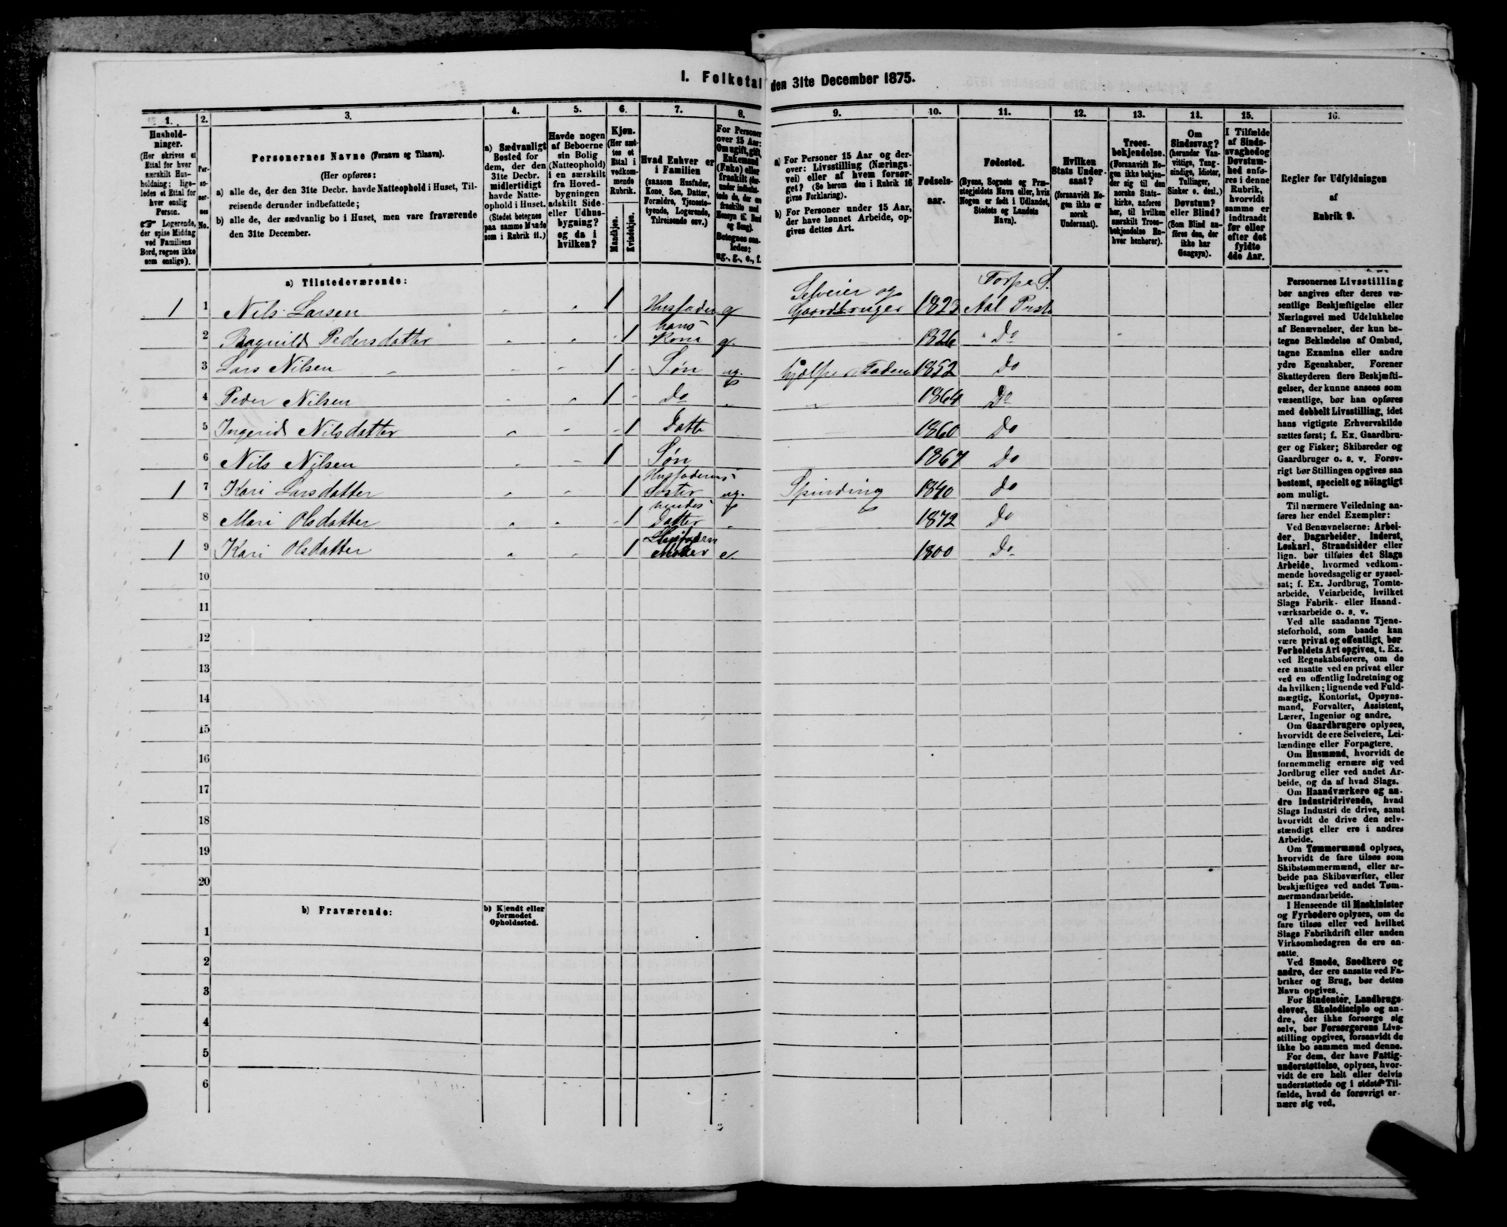 I. Folketal den 31te December 1875.
1. 2. 3. 4. 5. 6. 7. 8. 9. 10. 11. 12. 13. 14. 15. 16.
Hushold-
ninger.
(Her skrives et
Ettal for hver
særskilt Hus-
holdning; lige-
ledes et Ettal for
hver enslig
Person.
Logerende,
der spise Middag
ved Familiens
Bord, regnes ikke
som enslige).
Per-
so-
ner-
nes
No.
Personernes Navne (Fornavn og Tilnavn).
(Her opføres:
a) alle de, der den 31te Decbr. havde Natteophold i Huset, Til-
reisende derunder indbefattede;
b) alle de, der sædvanlig bo i Huset, men vare fraværende
den 31te December.
a) Sædvanligt
Bosted for
dem, der den
31te Decbr.
midlertidigt
havde Natte-
ophold i Huset.
(Stedet betegnes
paa samme Maade
som i Rubrik 11.)
Havde nogen
af Beboerne
sin Bolig
(Natteophold)
i en særskilt
fra Hoved-
bygningen
adskilt Side-
eller Udhus-
bygning?
og da i
hvilken?
Kjøn.
(Her sæt-
tes et
Ettal i
vedkom-
mende
Rubrik.
Mandkjøn.
Kvindekjøn.
Hvad Enhver er
i Familien
(saasom Husfader,
Kone, Søn, Datter,
Forældre, Tjeneste-
tyende, Logerende,
Tilreisende osv.)
For Personer
over 15 Aar:
Om ugift, gift,
Enkemand
(Enke) eller
fraskilt
Betegnes saa-
ledes:
ug., g., e., f.
a) For Personer 15 Aar og der-
over: Livsstilling (Nærings-
vei) eller af hvem forsør-
get? (Se herom den i Rubrik 16
givne Forklaring).
b) For Personer under 15 Aar,
der have lønnet Arbeide, op-
gives dettes Art.
Fødsels-
aar.
Fødested.
(Byens, Sognets og Præ-
stegjeldets Navn eller, hvis
Nogen er født i Udlandet,
Stedets og Landets
Navn).
Hvilken
Stats Under-
saat?
(forsaavidt No-
gen ikke er
norsk
Undersaat).
Troes-
bekjendelse.
(Forsaavidt No-
gen ikke bekjen-
der sig til den
norske Stats-
kirke, anføres
her, til hvilken
særskilt Troes-
bekjendelse En-
hver henhører).
Om
Sindssvag?
(herunder Van-
vittige, Tung-
sindige, Idioter,
Tullinger,
Sinker o. desl.)
Døvstum?
eller Blind?
(Som Blind an-
føres den, der
ikke har
Gangsyn).
I Tilfælde
af Sinds-
svaghed og
Døvstum-
hed anfø-
res i denne
Rubrik,
hvorvidt
samme er
indtraadt
før eller
efter det
fyldte
4de Aar.
Regler for Udfyldningen
af
Rubrik 9.
a) Tilstedeværende:
1 1 Nils Larsen 1 Husfader g Selveier og Gaardbruger 1823 Torpe S. Aal Prst.
2 Ragnild Pedersdatter 1 hans Kone g. 1826 Do
3 Lars Nilsen 1 Søn ug. hjælper Faderen 1852 Do
4 Peder Nilsen 1 Do 1864 Do
5 Ingerid Nilsdatter 1 Datter 1860 Do
6 Nils Nilsen 1 Søn 1867 Do
1 7 Kari Larsdatter 1 Husfaderens Søster ug. Spinding 1840 Do
8 Mari Olsdatter 1 hendes Datter 1872 Do
1 9 Kari Olsdatter 1 Husfaderen Moder e. 1800 Do
10
11
12
13
14
15
16
17
18
19
20
b) Fraværende:
b) Kjendt eller
formodet
Opholdssted.
1
2
3
4
5
6
Personernes Livsstilling
bør angives efter deres væ-
sentlige Beskjæftigelse eller
Næringsvei med Udelukkelse
af Benævnelser, der kun be-
tegne Beklædelse af Ombud,
tagne Examina eller andre
ydre Egenskaber. Forener
Skatteyderen flere Beskjæfti-
gelser, der kunne ansees som
væsentlige, bør han opføres
med dobbelt Livsstilling, idet
hans vigtigste Erhvervskilde
sættes først; f. Ex. Gaardbru-
ger og Fisker; Skibsreder og
Gaardbruger o. s. v. Forøv-
rigt bør Stillingen opgives saa
bestemt, specielt og nøiagtigt
som muligt.
Til nærmere Veiledning an-
føres her endel Exempler:
Ved Benævnelserne: Arbei-
der, Dagarbeider, Inderst,
Løskarl, Strandsidder eller
lign. bør tilføies det Slags
Arbeide, hvormed vedkom-
mende hovedsagelig er syssel-
sat; f. Ex. Jordbrug, Tomte-
arbeide, Veiarbeide, hvilket
Slags Fabrik- eller Haand-
værksarbeide o. s. v.
Ved alle saadanne Tjene-
steforhold, som baade kan
være privat og offentligt, bør
Forholdets Art opgives, t. Ex.
ved Regnskabsførere, om de
ere ansatte ved en privat eller
ved en offentlig Indretning og
da hvilken; lignende ved Fuld-
mægtig, Kontorist, Opsyns-
mand, Forvalter, Assistent,
Lærer, Ingeniør og andre.
Om Gaardbrugere oplyses,
hvorvidt de ere Selveiere, Lei-
lændinge eller Forpagtere.
Om Husmænd, hvorvidt de
fornemmelig ernære sig ved
Jordbrug eller ved andet Ar-
beide, og da af hvad Slags.
Om Haandværkere og an-
dre Industridrivende, hvad
Slags Industri de drive, samt
hvorvidt de drive den selv-
stændigt eller ere i andres
Arbeide.
Om Tømmermænd oplyses,
hvorvidt de fare tilsøs som
Skibstømmermænd, eller ar-
beide paa Skibsværfter, eller
beskjæftiges ved andet Tøm-
mermandsarbeide.
I Henseende til Maskinister
og Fyrbødere oplyses, om de
fare tilsøs eller ved hvilket
Slags Fabrikdrift eller anden
Virksomhedsgren de ere an-
satte.
Ved Smede, Snedkere og
andre, der ere ansatte ved Fa-
briker og Brug, bør dettes
Navn opgives.
For Studenter, Landbrugs-
elever, Skoledisciple og an-
dre, der ikke forsørge sig
selv, bør Forsørgerens Livs-
stilling opgives, forsaavidt de
ikke bo sammen med denne.
For dem, der have Fattig-
understøttelse, oplyses, hvor-
vidt de ere helt eller delvis
understøttede og i sidste Til-
fælde, hvad de forøvrigt er-
nære sig ved.